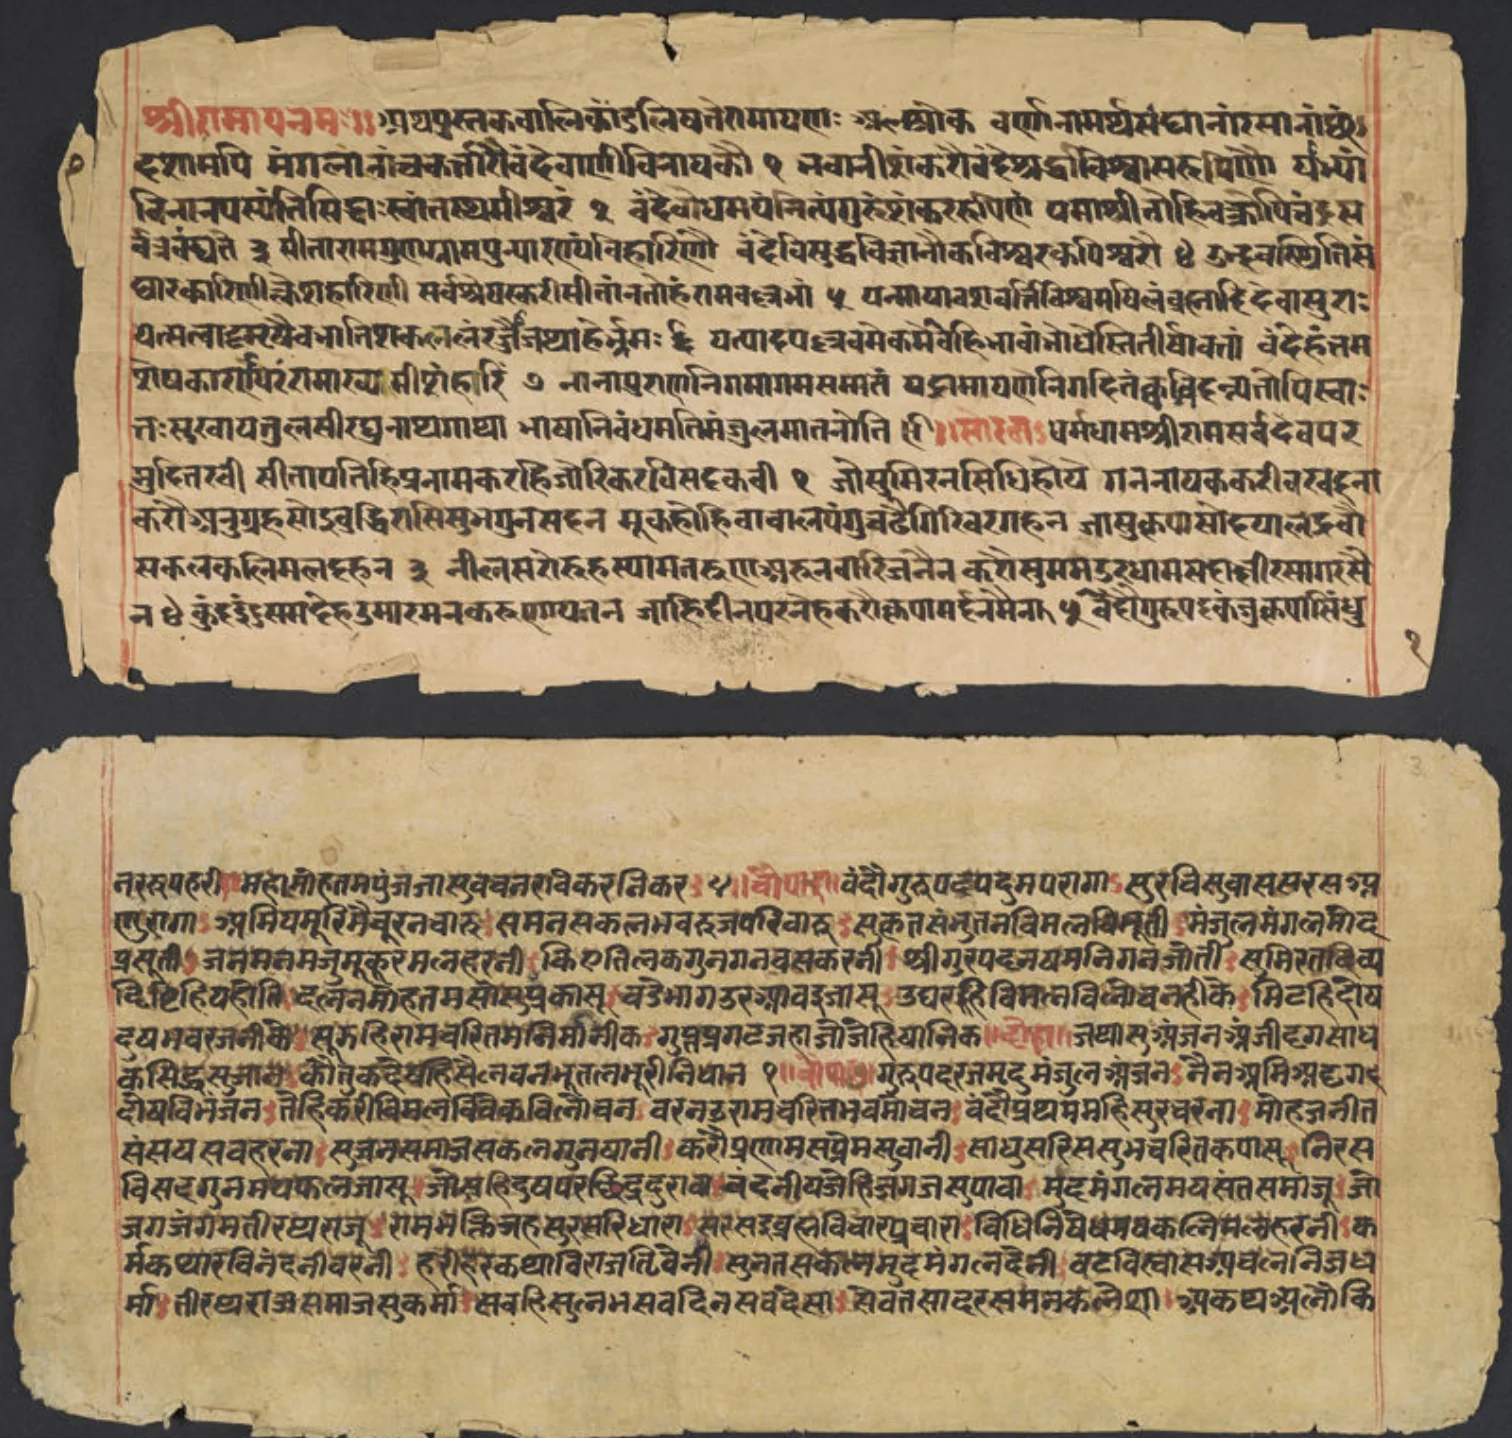 श्रीरामायनमः।। अथपुस्तकवालिकांडलिषतेरामायणः श्लोक वर्णानामर्थसंघानांरसानांछं
दशामपि मंगलांनांचकर्तारौवंदेवाणीविनायकौ १ भवानीशंकरौवंदेश्रद्धाविश्वासरूपिणौ याभ्यां
विनानपस्यंतिसिद्धाःस्वांतस्थमीश्वरं २ वंदेवोधमयंनित्यंगुरुंशंकररूपिणं यमाश्रीतोहिवक्रोपिचंद्रस
र्वत्रवंद्यते ३ सीतारामगुणग्रामपुन्यारण्यविहारिणौ वंदेविसुद्धविज्ञानौकविश्वरकपिश्वरौ ४ उद्भवस्थितिसं
घारकारिणीक्लेशहारिणी सर्वश्रेयस्करीसीतांनतोहंरामवल्लभां ५ यन्मायावशवर्त्तिविश्वमषिलंब्रह्मादिदेवासुराः
यत्सत्वादमृषैवभातिशकलंरज्जौजथाहेर्भ्रमः ६ यत्पादप्लवमेकमेवहिभावांभोधेस्तितीर्षावतां वंदेहंतम
शेषकारणपरंरामाख्यमीशंहरिं ७ नानापुराणनिगमागमसम्मतं यद्रामायणेनिगदितंक्वचिदन्यतोपिस्वाः
तःसुखायतुलसीरघुनाथगाथा भाषानिवंधमतिमंजुलमातनोति सोरठा धर्मधामश्रीरामसर्वदेवपर
मुदितरवी सीतापतिहिप्रनामकरहिजोरिकरविसदकवी १ जोसुमिरनसिधिहोय गननायककरीवरवदना
करौअनुग्रहसोइबुद्धिरासिसुभगुनसदन मूकहोहिवाचालपंगुचढैगिरिवरगहन जासुकृपासोदयालद्रवौ
सकलकलिमलदहन ३ नीलसरोरुहस्यामतरुणअरुनवारिजनैन करौसुममउरधामसदाक्षीरसागरसै
न ४ कुंदइंदुसमदेहउमारमनकरुणायतन जाहिदीनपरनेहकरौकृपामर्दनमैन ५ वंदौगुरुपदकंजकृपासिंधु
१
नररुपहरी महामोहतमपुंजजासुवचनरविकरनिकर ५ चौपाई वंदौगुरुपदपदुमपरागा सुरुचिसुवाससरसअ
णुरागा अमियमूरिमैचूरनचारु समनसकलभवरुजपरिवारु सुकृतसंभुतनविमलविभूती मंजुलमंगलमोद
प्रसूती जनमनमंजुमुकुरमलहरनी किएतिलकगुनगनवसकरनी श्रीगुरपदनषमनिगनजोती सुमिरतदिव्य
द्रिष्टिहियहोति दलनमोहतमसोसुप्रकासू वडेभागउरआवइजासू उघरहिविमलविलोचनहीके मिटहिदोष
दुषभवरजनीके सूझहिरामचरितमनिमानीक गुप्तप्रगटजहाजोजेहिषानिक दोहा जथासुअंजनअंजीदृगसाध
कसिद्धसुजान कौतुकदेषहिसैलवनभूतलभूरीनिधान १ चौपाई गुरुपदरजमृदुमंजुलअंजन नैनअमिअदृग
दोषविभंजन तेहिकरीविमलविवेकविलोचन वरनउरामचरितभवमोचन वंदौप्रथममहिसुरचरना मोहजनीत
संसयसवहरना सुजनसमाजसकलगुनषानी करौप्रणामसप्रेमसुवानी साधुसरिससुभचरितकपासू निरस
विसदगुनमयफलजासू जोसहिदुषपरछिद्रदुरावा वंदनीयजेहिजगजसुपावा मुदमंगलमयसंतसमाजू जो
जगजंगमतीरथराजू रामभक्तिजहसुरसरिधारा सरसइब्रह्मविचारप्रचारा विधिनिषेधमयकलिमलहरनी क
र्मकथारविनंदनीवरनी हरीहरकथाविराजतिवेनी सुनतसकलमुदमंगलदेनी वटविस्वासअचलनिजध
र्मा तीरथराजसमाजसुकर्मा सवहिसुलभसवदिनसवदेसा सेवतसादरसमनकलेशा अकथअलौकि